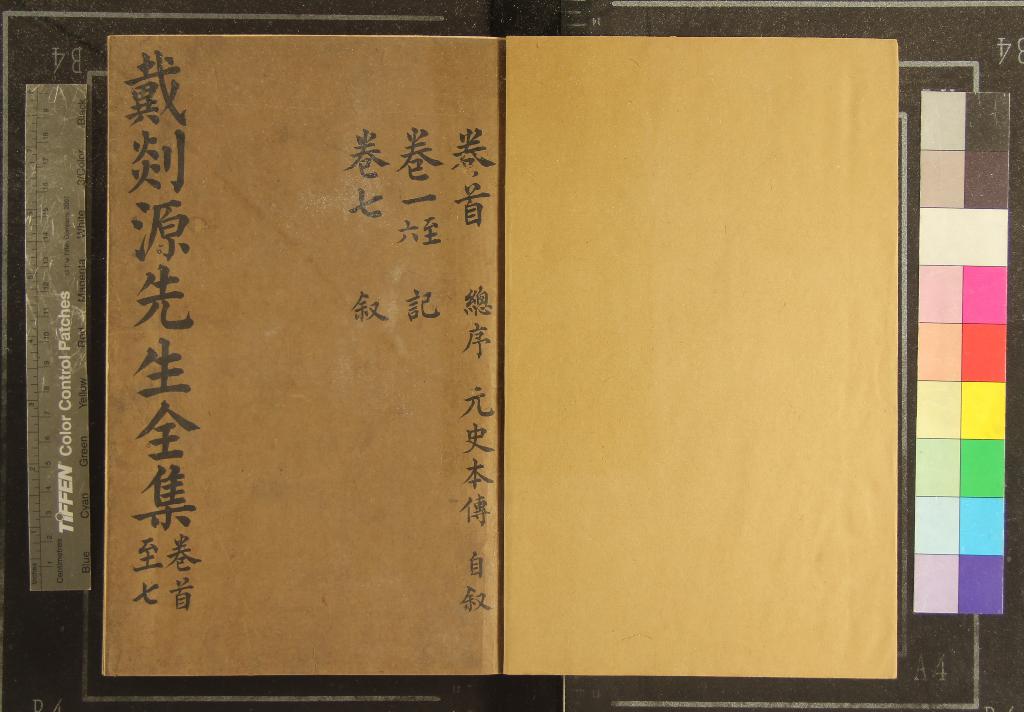 卷首　總序　元史本傳　自叙
卷一至六　記
卷七　叙
戴剡源先生全集卷首至七
B4
B4
A4
TIFFEN Color Control Patches
Blue Cyan Green Yellow Red Magenta White 3/Color Black
Centimetres
Inches